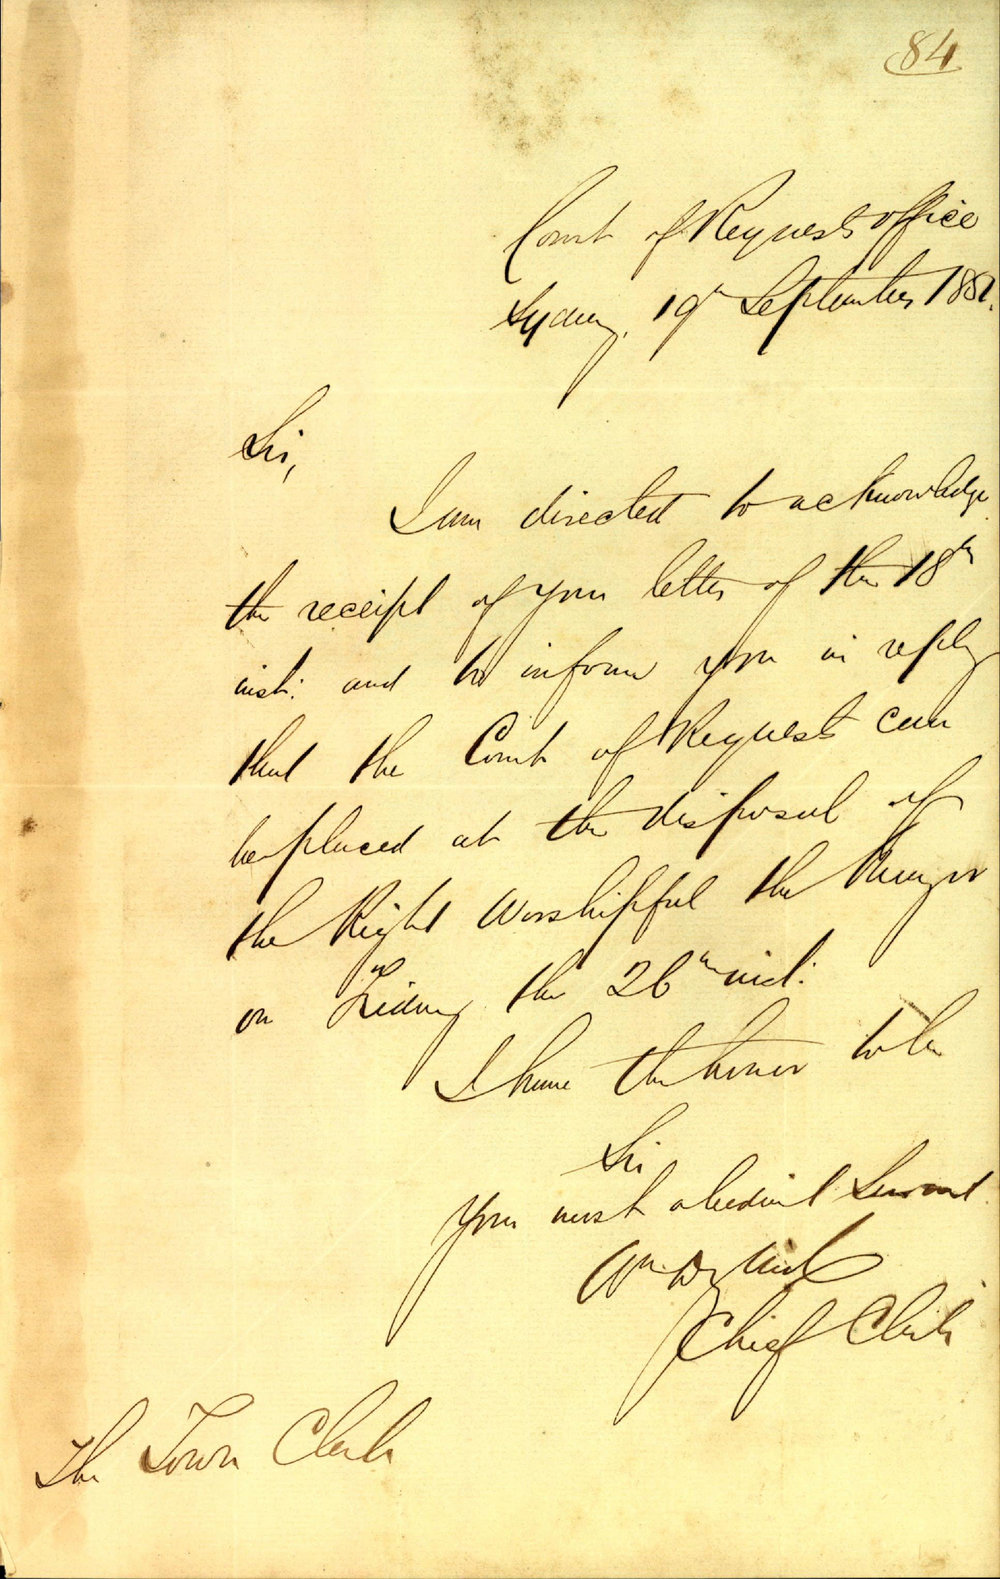 84
Court of Requests office
Sydney, 19th September 1881.
Sir,
I am directed to acknowledge
the receipt of your letter of the 18th
inst: and to inform you in reply
that the Court of Requests can
be placed at the disposal of
the Right Worshipful the Mayor
on Friday the 26th inst:
I have the honor to be
Sir
Your most obedient Servant
Wm
Chief Clerk
The Town Clerk